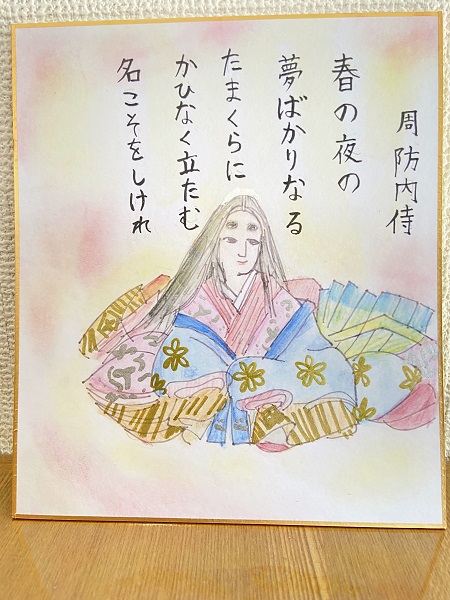 周防内侍
春の夜の
夢ばかりなる
たまくらに
かひなく立たむ
名こそをしけれ